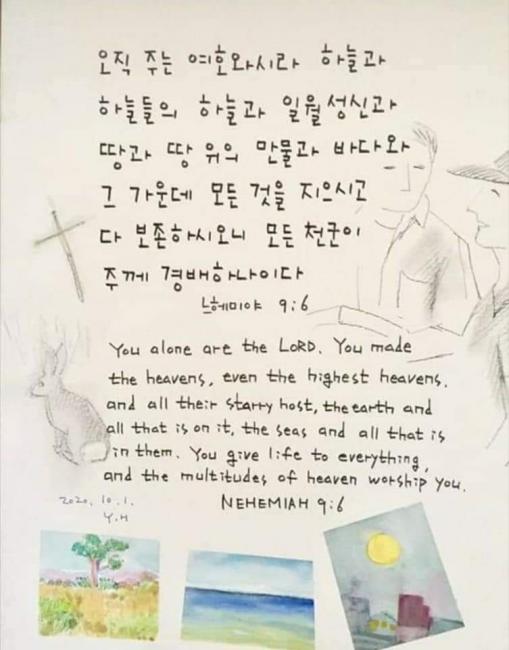 오직 주는 여호와시라 하늘과
하늘들의 하늘과 일월성신과
땅과 땅 위의 만물과 바다와
그 가운데 모든 것을 지으시고
다 보존하시오니 모든 천군이
주께 경배하나이다
느헤미야 9:6
You alone are the LORD. You made
the heavens, even the highest heavens,
and all their starry host, the earth and
all that is on it, the seas and all that is
in them. You give life to everything,
and the multitudes of heaven worship you.
NEHEMIAH 9:6
2020. 10. 1.
Y.H